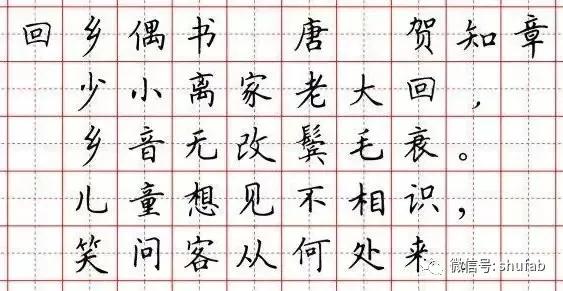 回乡偶书 唐 贺知章
少小离家老大回，
乡音无改鬓毛衰。
儿童想见不相识，
笑问客从何处来
微信号: shufab